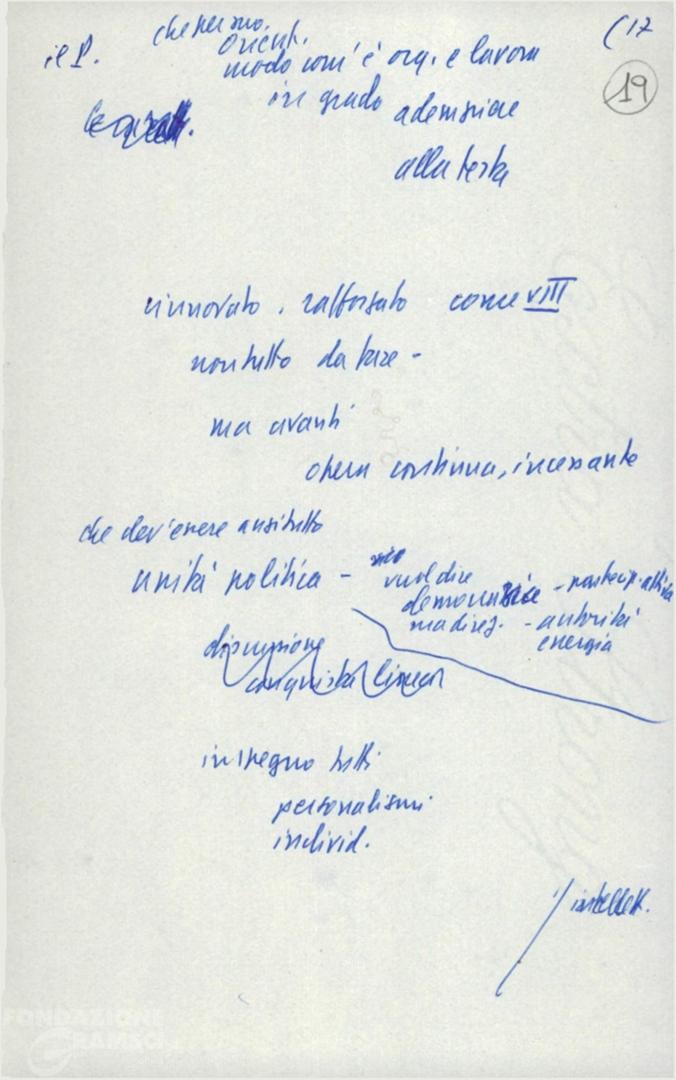 (17
19
che per suo
orient.
il P. modo com'è org. e lavora
in grado adempiere
alla testa
rinnovato . rafforzato come VIII
non tutto da fare -
ma avanti
opera continua, incessante
che dev'essere anzitutto
unità politica - vuol dire
democrazia - partecip. attiva
ma direz. - autorità
energia
discussione
conquista linea
impegno tutti
personalismi
individ.
intellett.
FONDAZIONE
GRAMSCI